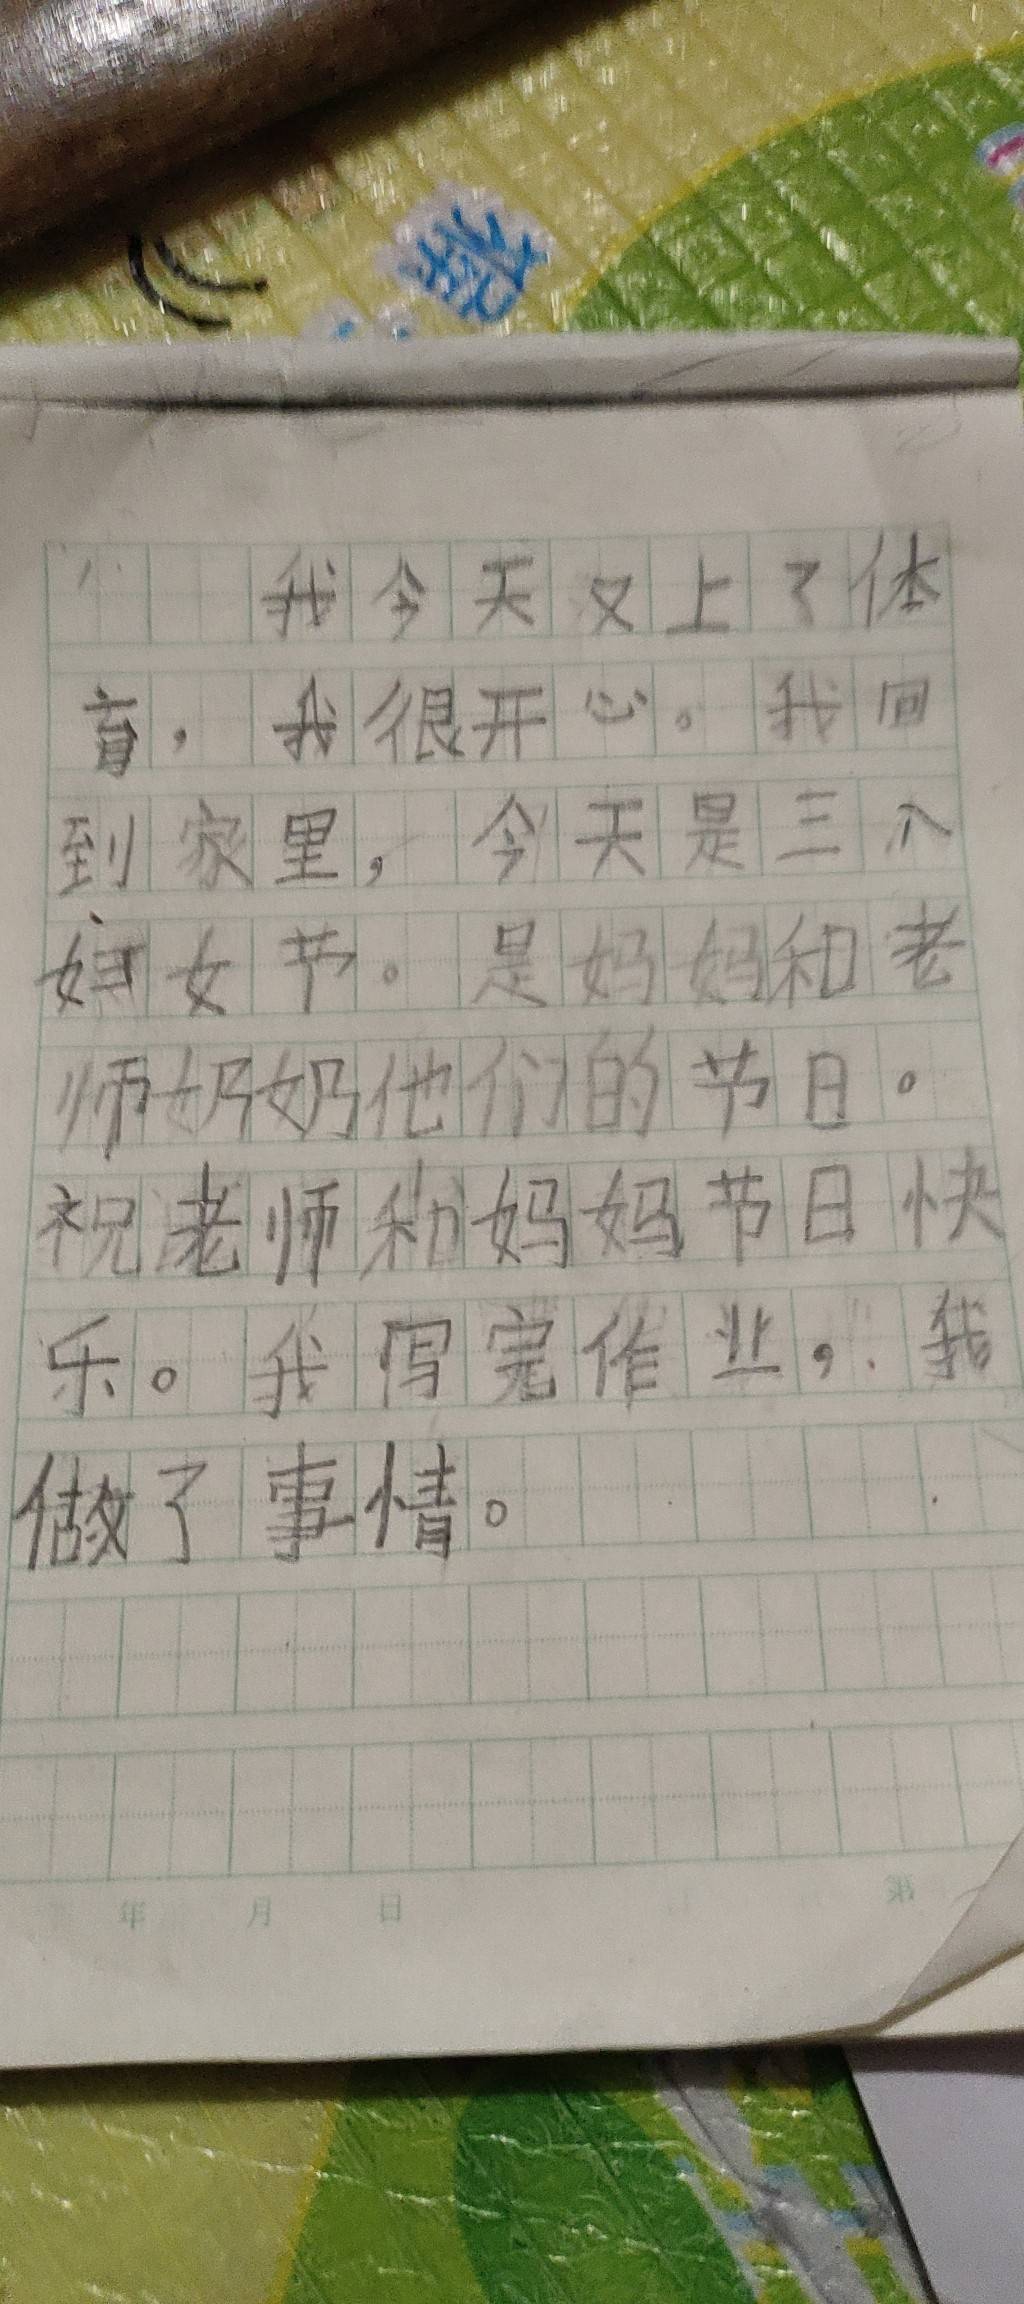 我今天又上了体
育，我很开心。我回
到家里，今天是三个
妇女节。是妈妈和老
师奶奶他们的节日。
祝老师和妈妈节日快
乐。我写完作业，我
做了事情。
年 月 日 第